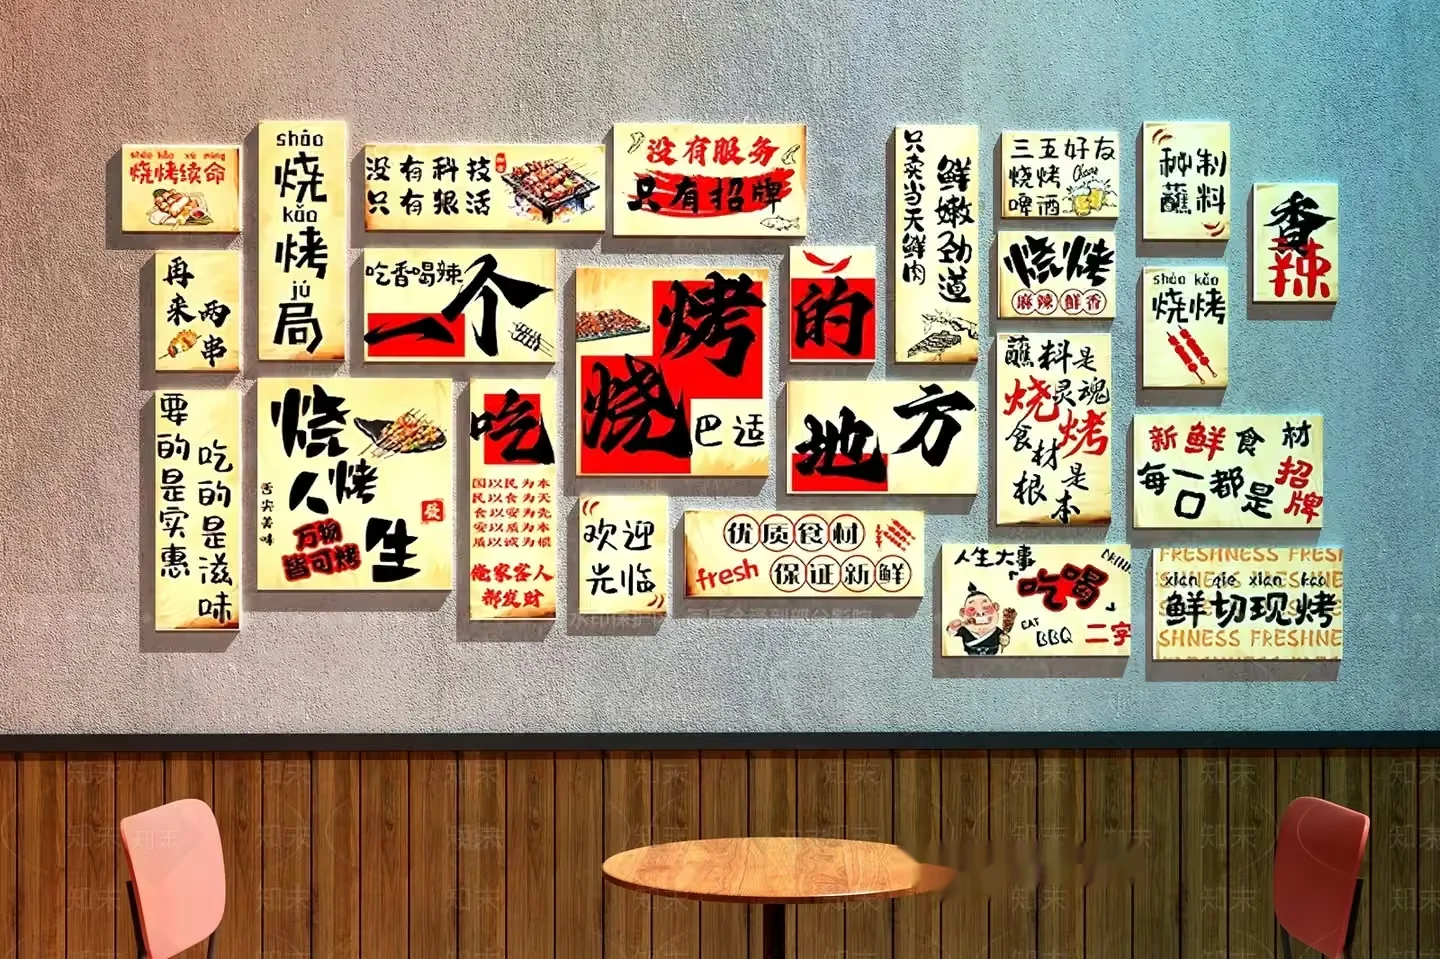 shāo kǎo xù mìng
烧烤续命
shāo
烧
kǎo
烤
jú
局
没有科技
只有狠活
没有服务
只有招牌
只卖当天鲜肉
鲜嫩劲道
三五好友
烧烤
Cheers
啤酒
秘制
蘸料
香
辣
再来
两串
吃香喝辣
一个
烧烤
巴适
的
烧烤
麻辣鲜香
shāo kǎo
烧烤
要的是实惠
吃的是滋味
烧烤
人生
舌尖美味
万物
皆可烤
吃
国以民为本
民以食为天
食以安为先
安以质为本
质以诚为根
俺家客人
都发财
地方
蘸料是
灵魂
烧烤
食材
是
根本
新鲜食材
每一口都是
招牌
欢迎
光临
优质食材
fresh
保证新鲜
人生大事
「吃喝」
EAT
BBQ
二字
FRESHNESS FRESH
xiān qiē xiàn kǎo
鲜切现烤
SHNESS FRESHNE
知末